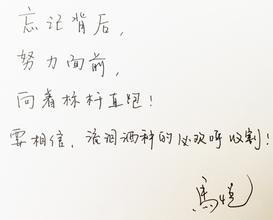 忘记背后，
努力面前，
向着标杆直跑！
要相信，流泪洒种的必欢呼收割！
馬